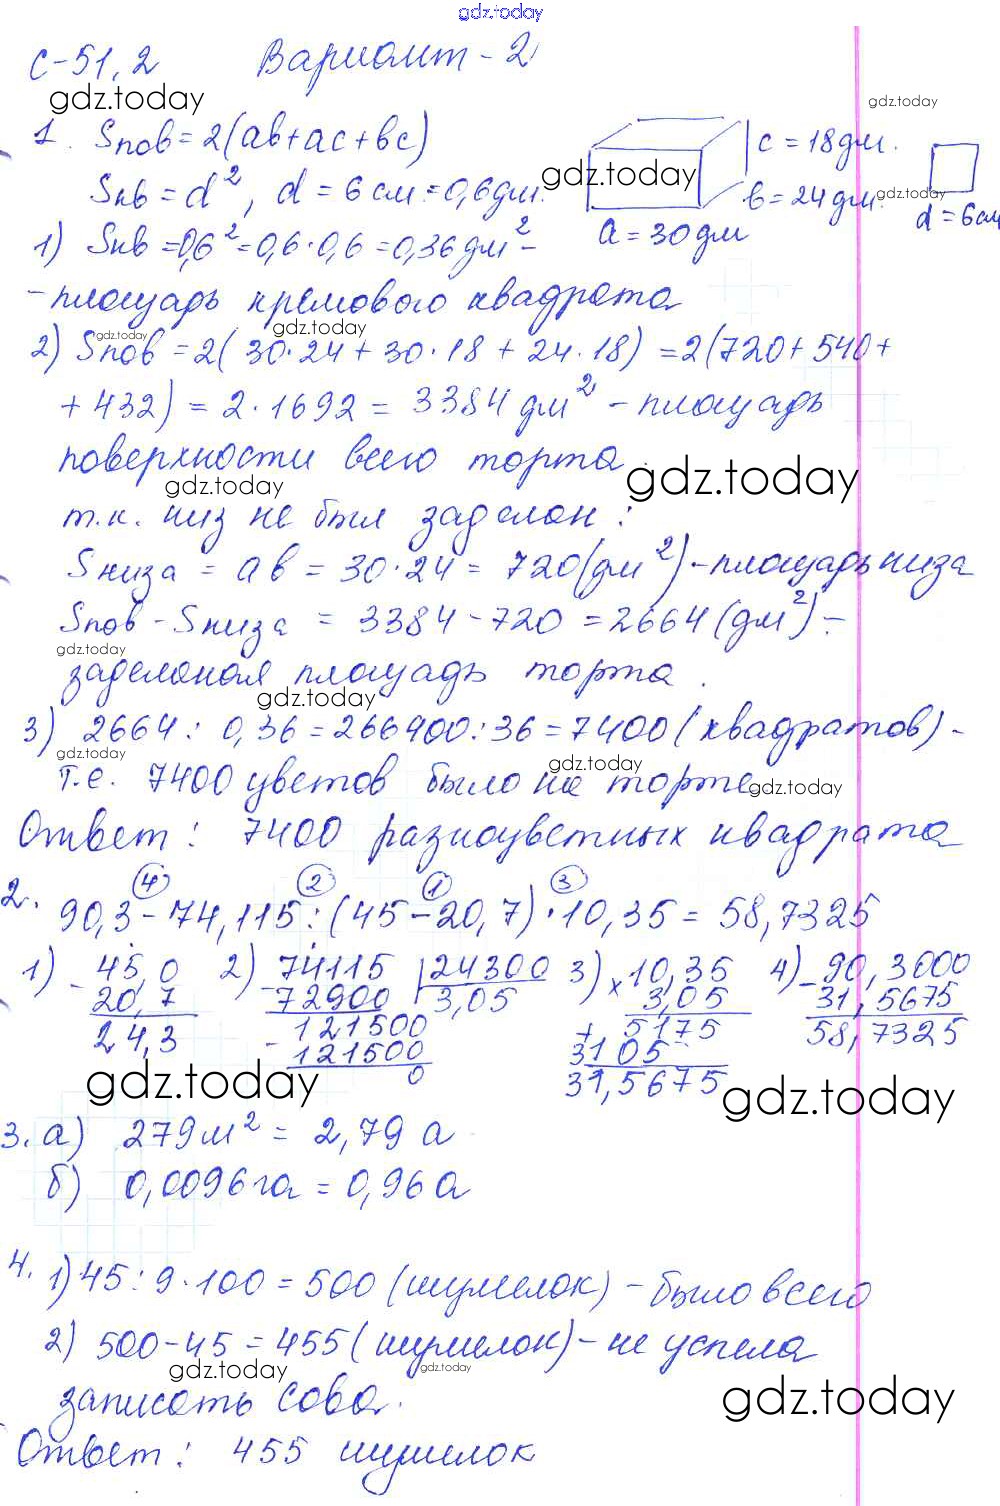 gdz.today
С-51,2 Вариант-2
gdz.today
gdz.today
1. Sпов=2(ab+ac+bc)
c=18дм.
Sкв=d², d=6см=0,6дм.
gdz.today
b=24дм.
gdz.today
a=30дм
d=6см
1) Sкв=0,6²=0,6·0,6=0,36дм²-
-площадь кремового квадрата
gdz.today
2) Sпов=2(30·24+30·18+24·18)=2(720+540+
gdz.today
+432)=2·1692=3384дм²-площадь
поверхности всего торта.
gdz.today
gdz.today
т.к. низ не был заделан:
Sниза=ab=30·24=720(дм²)-площадь низа
Sпов-Sниза=3384-720=2664(дм²)-
gdz.today
заделаная площадь торта.
gdz.today
3) 2664:0,36=266400:36=7400(квадратов)-
gdz.today
gdz.today
т.е. 7400 цветов было на торте
gdz.today
Ответ: 7400 разноцветных квадрата
4 2 1 3
2. 90,3-74,115:(45-20,7)·10,35=58,7325
1) 45,0 2) 74115 24300 3) 10,35 4) 90,3000
- 20,7 - 72900 3,05 × 3,05 - 31,5675
24,3 - 121500 + 5175 58,7325
121500 3105
0 31,5675
gdz.today
gdz.today
3. а) 279м²=2,79а
б) 0,0096га=0,96а
4. 1) 45:9·100=500(шумелок)-было всего
2) 500-45=455(шумелок)-не успела
gdz.today
gdz.today
gdz.today
записать сова.
Ответ: 455 шумелок